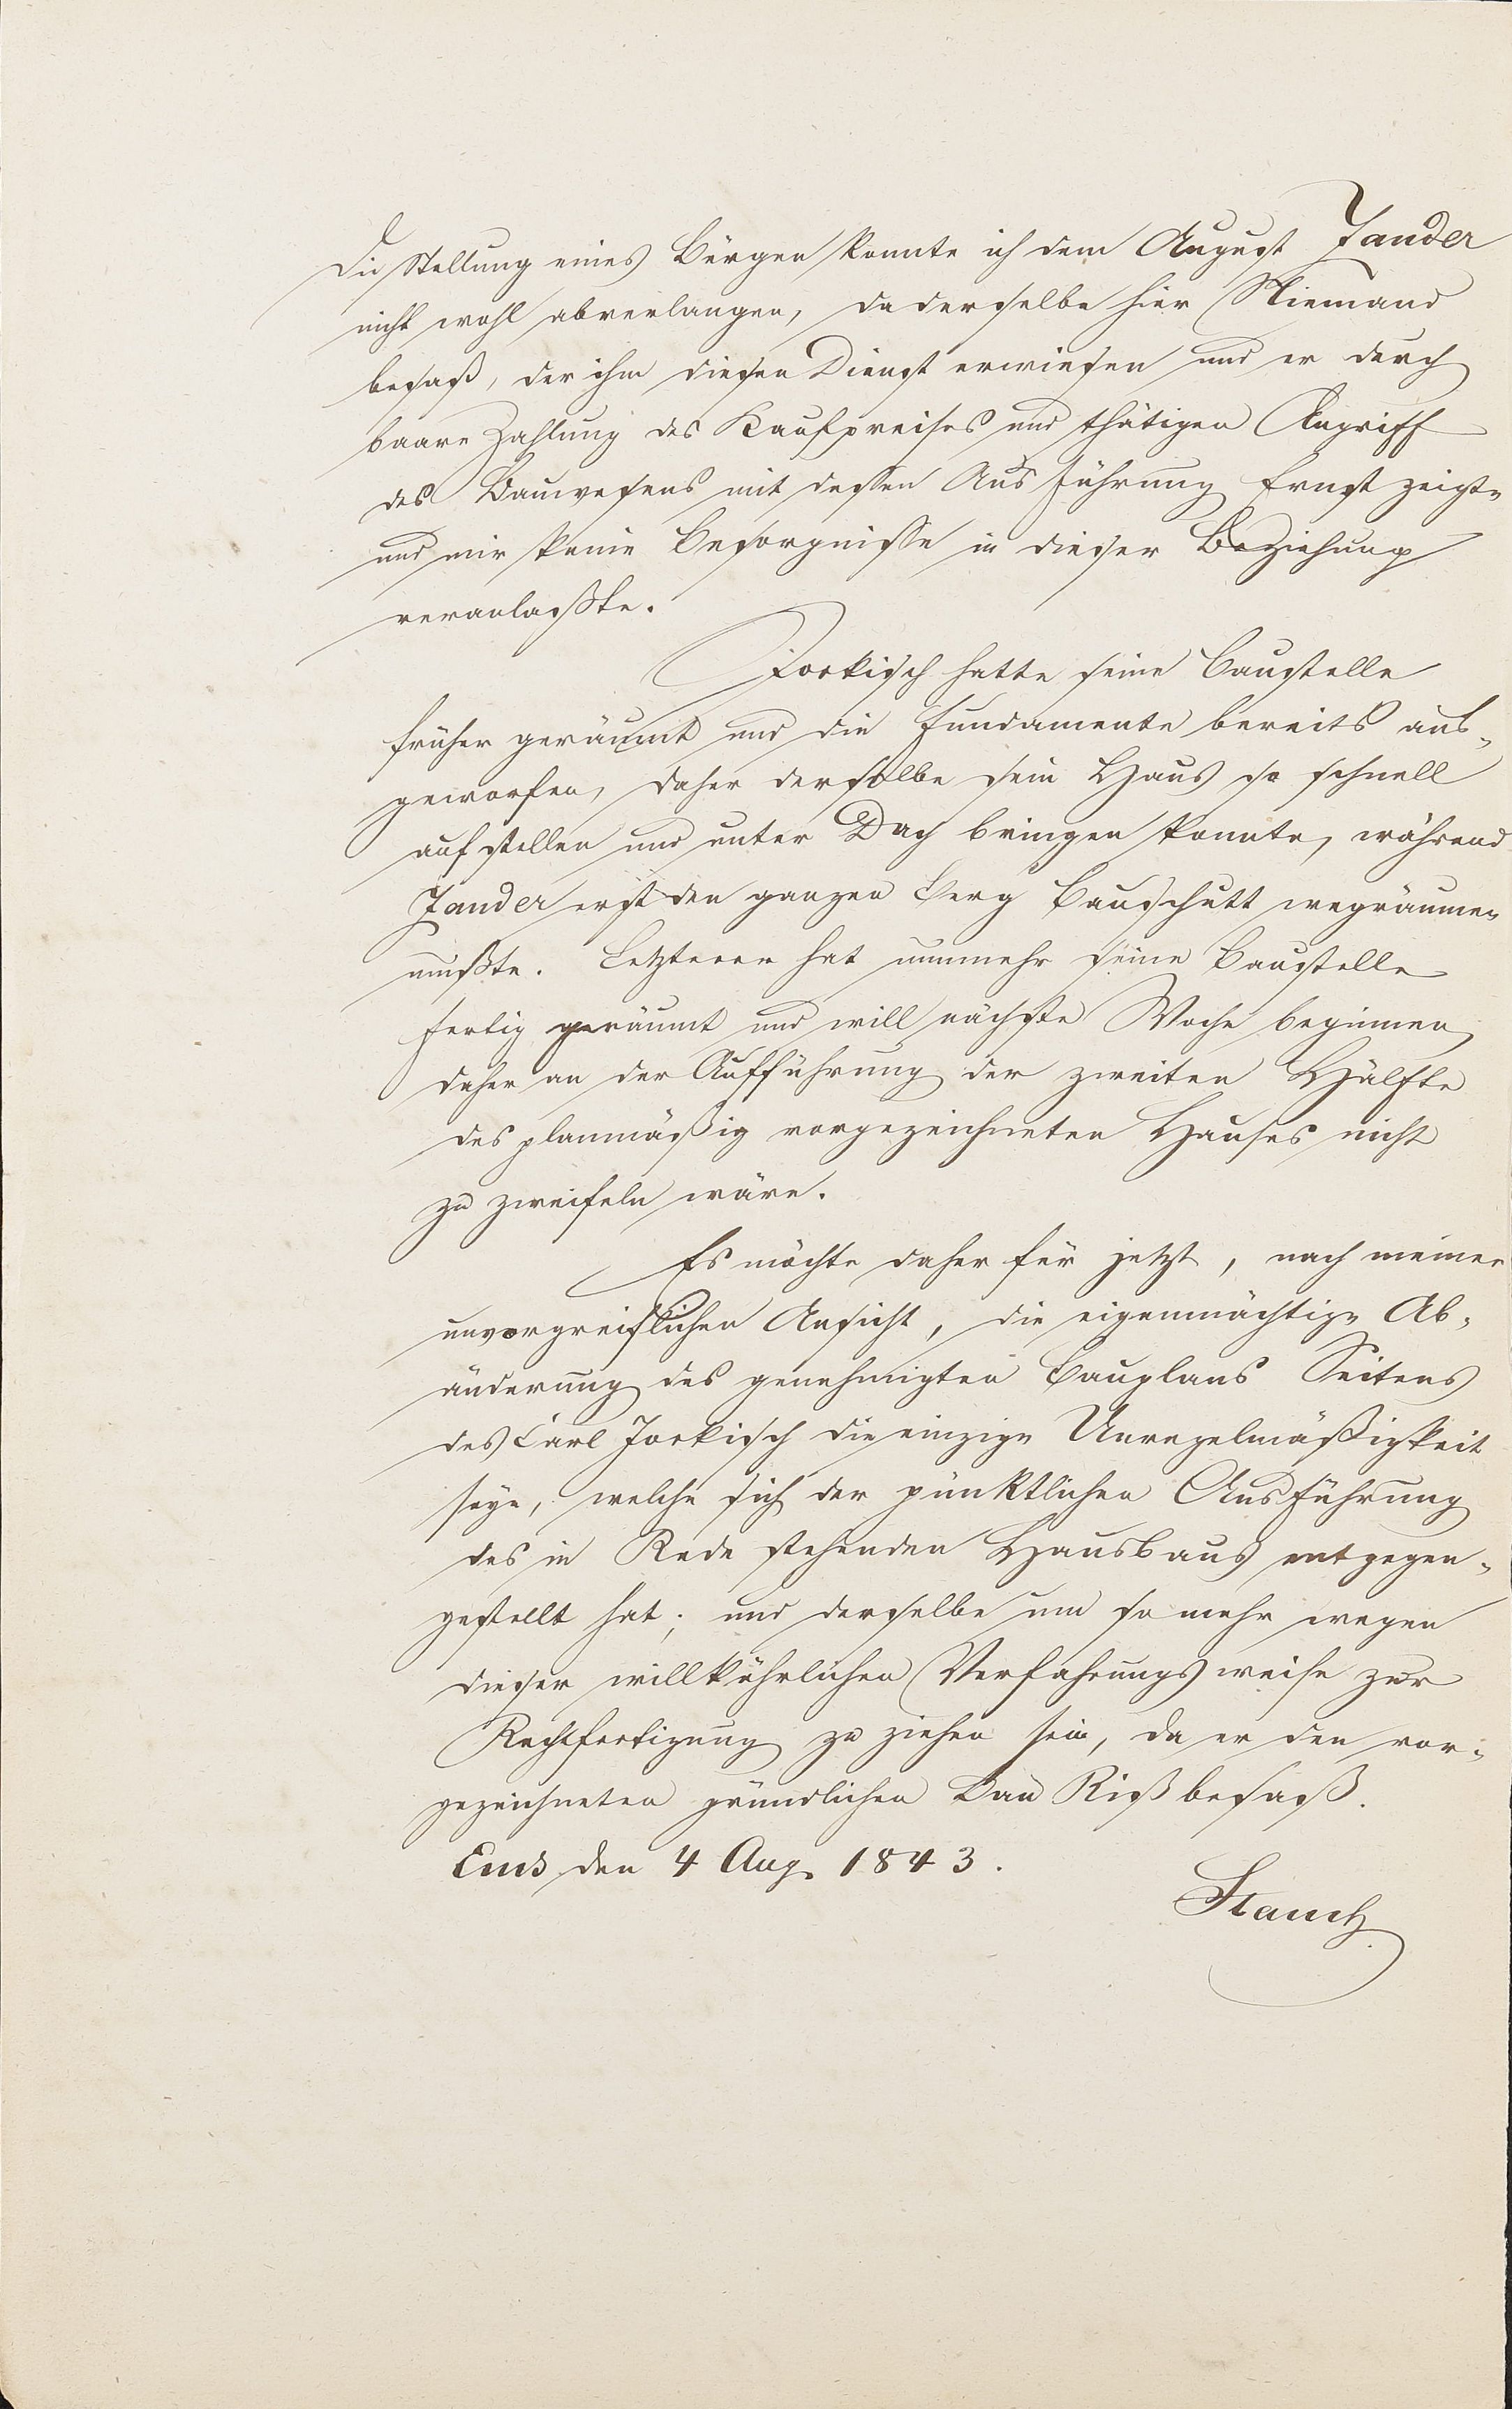 Die Stellung eines Bürgen konnte ich dem August Zander
nicht wohl abverlangen, da derselbe hier Niemand
besaß, der ihm diesen Dienst erwiesen und er durch
baare Zahlung des Kaufpreises und thätigen Angriff
des Bauwesens mit dessen Ausführung Ernst zeigte
und mir keine Besorgnisse in dieser Beziehung
veranlaßte.
Jockisch hatte seine Baustelle
früher geräumt und die Fundamente bereits aus-
geworfen, daher derselbe sein Haus so schnell
aufstellen und unter Dach bringen konnte, während
Zander erst den ganzen Berg Bauschutt wegräumen
mußte. Letzterer hat nunmehr seine Baustelle
fertig geräumt und will nächste Woche beginnen,
daher an der Aufführung der zweiten Hälfte
des planmäßig vorgezeichneten Hauses nicht
zu zweifeln wäre.
Es möchte daher für jetzt, nach meiner
unvorgreiflichen Ansicht, die eigenmächtige Ab-
änderung des genehmigten Bauplans Seitens
des Carl Jockisch die einzige Unregelmäßigkeit
seye, welche sich der pünktlichen Ausführung
des in Rede stehenden Hausbaus entgegen-
gestellt hat; und derselbe um so mehr wegen
dieser willkührlichen Verfahrungsweise zur
Rechtfertigung zu ziehen sein, da er den vor-
gezeichneten gründlichen Bau Riß besaß.
Ems den 4 Aug. 1843.
Stauch